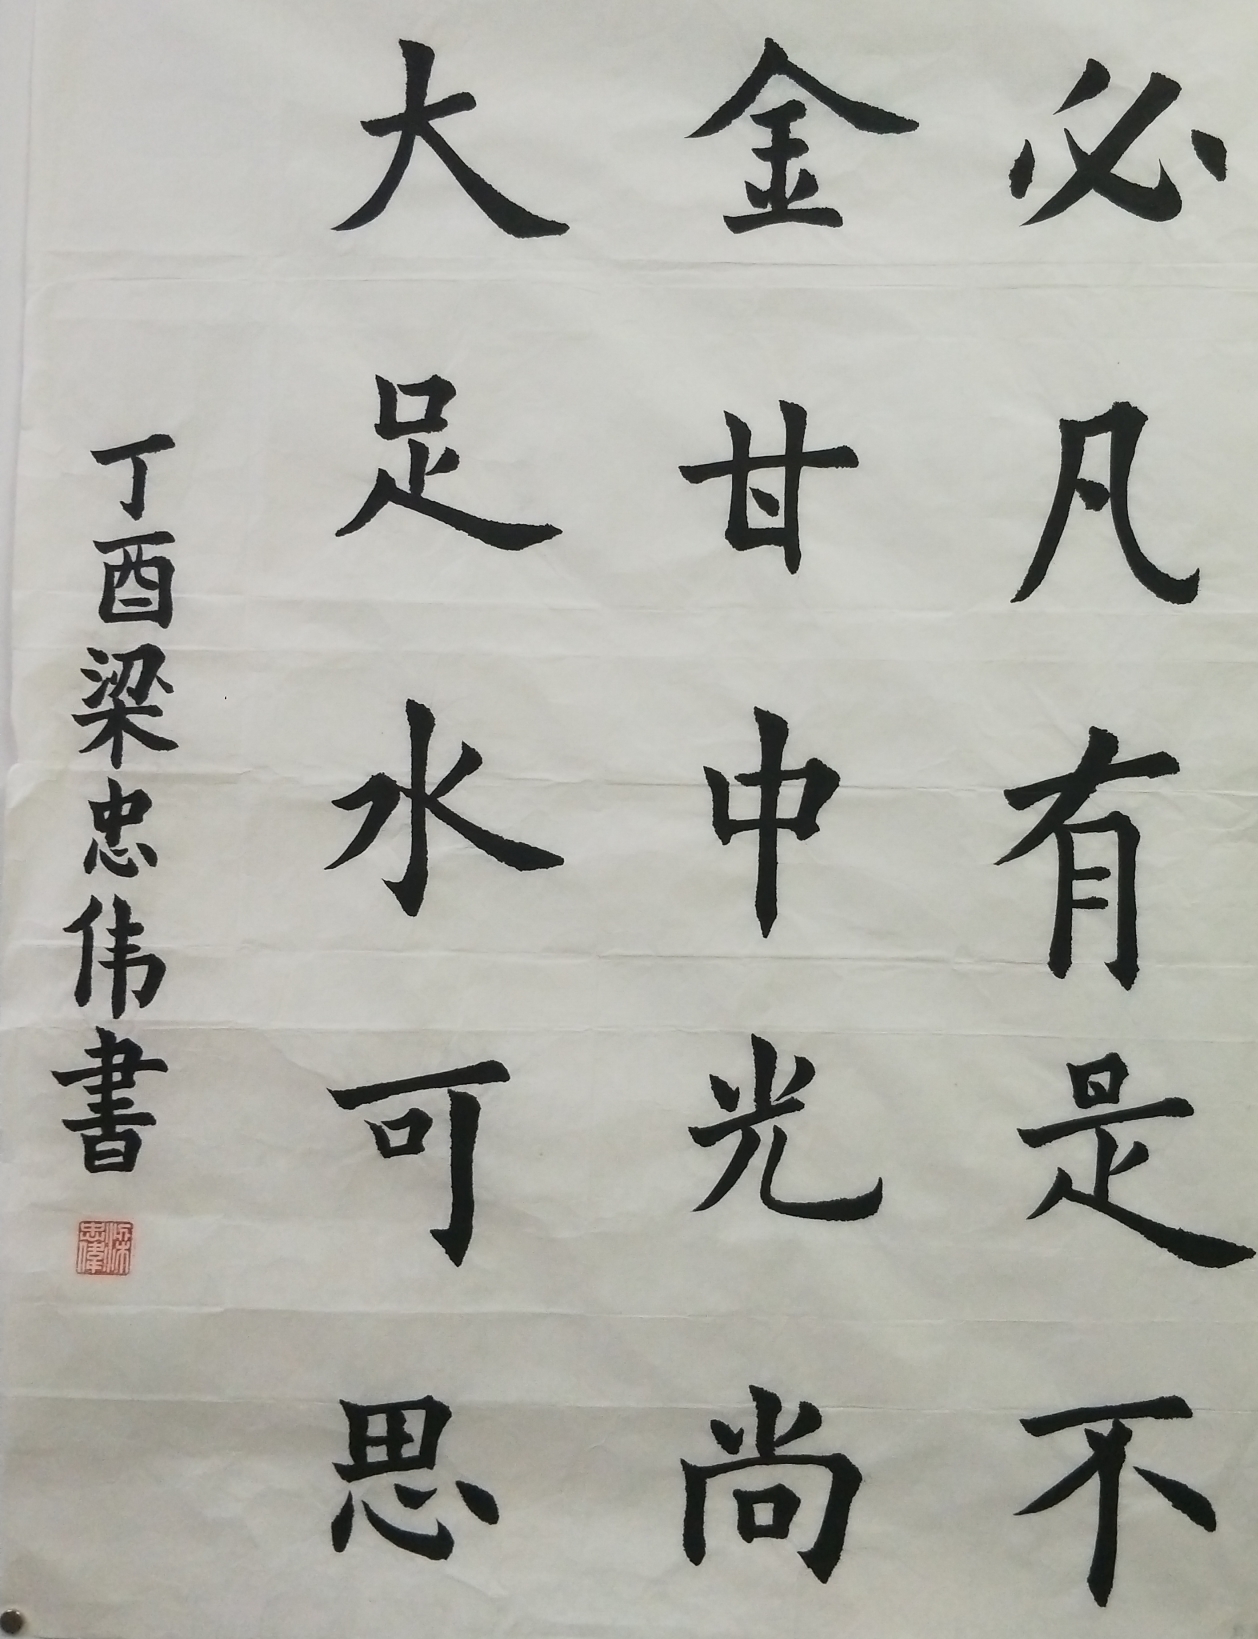 必凡有是不
金甘中光尚
大足水可思
丁酉梁忠伟書
梁忠偉